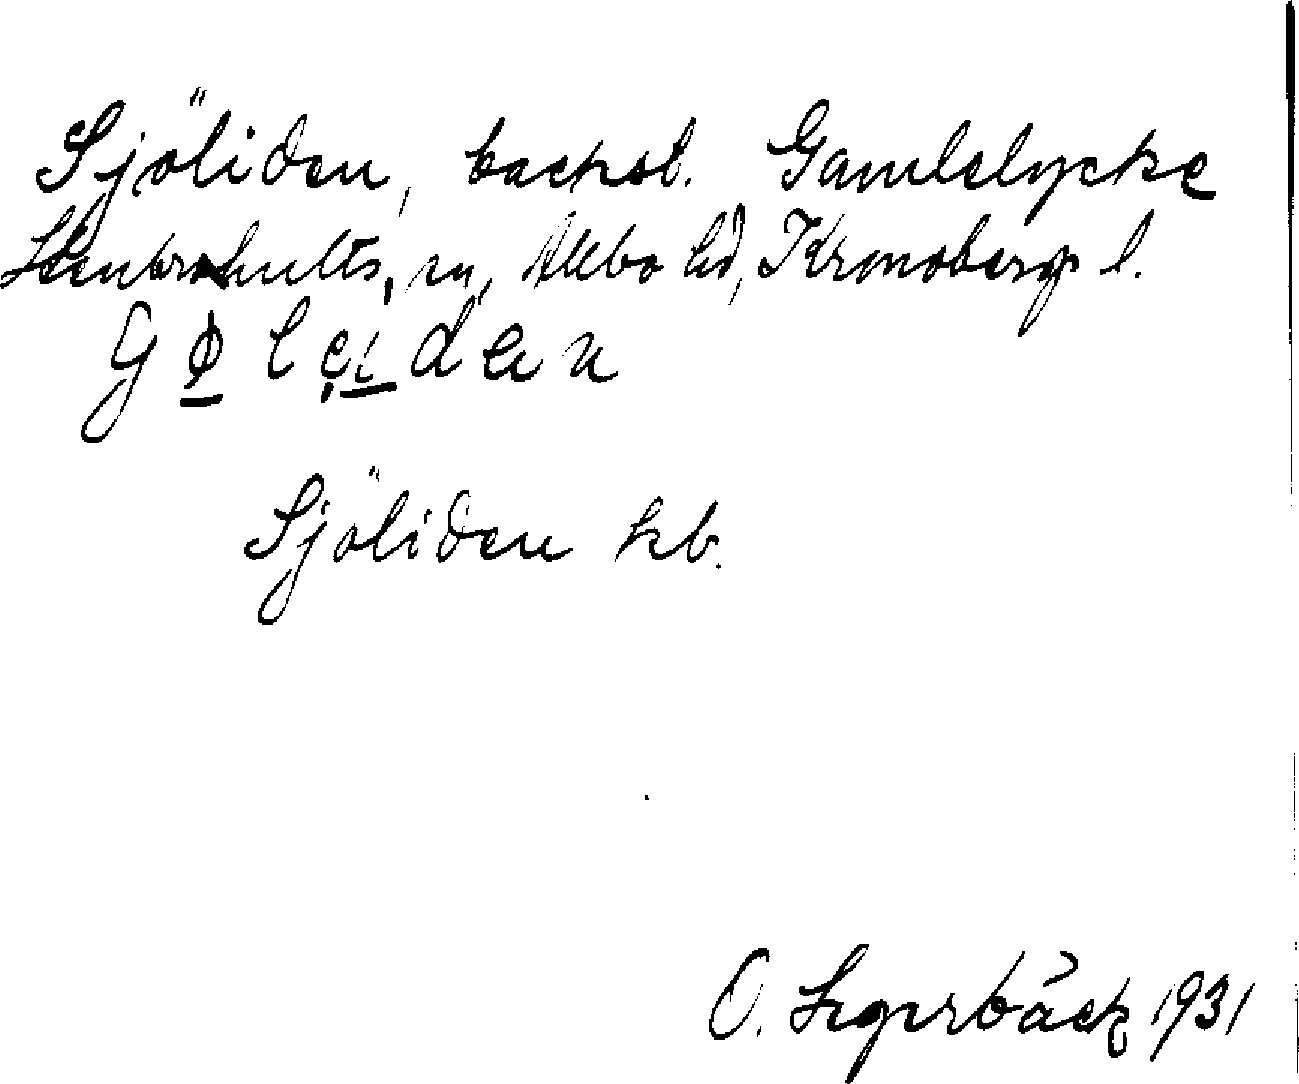 Sjöliden, backst. Gamlelycke
Stenbrohults, sn, Allbo hd, Kronoberg l.
Sjöliden kb.
O. Segerbäck 1931